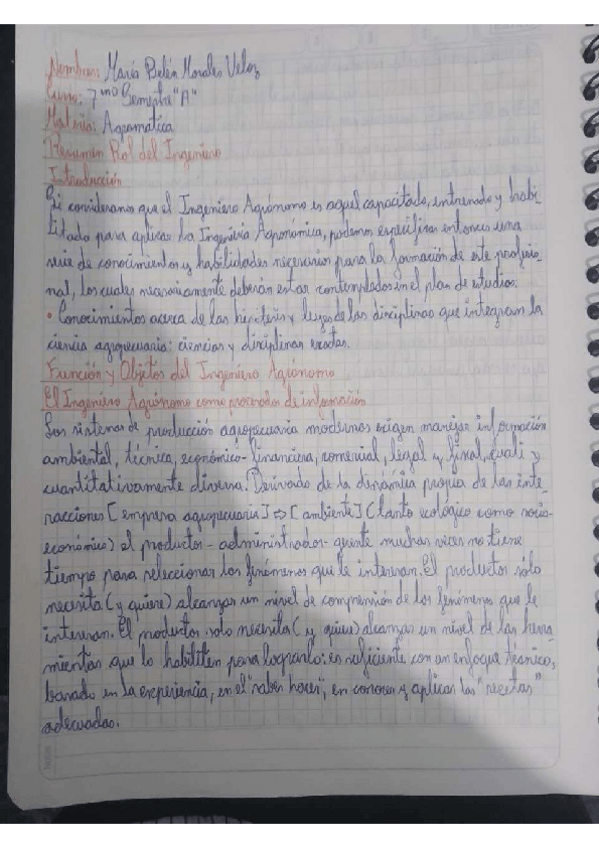 Nombre: María Belén Morales Veloz
Curso: 7mo Semestre "A"
Materia: Agromatica
Resumen Rol del Ingeniero
Introducción
Si consideramos que el Ingeniero Agrónomo es aquel capacitado, entrenado y habi
litado para aplicar la Ingeniería Agronómica, podemos especificar entonces una
serie de conocimientos y habilidades necesarios para la formación de este profesio_
nal, los cuales necesariamente deberan estar contemplados en el plan de estudios.
• Conocimientos acerca de las hipótesis y leyes de las disciplinas que integran la
ciencia agropecuaria: ciencias y disciplinas exactas.
Función y Objetos del Ingeniero Agrónomo
El Ingeniero Agrónomo como procesador de información
Los sistemas de producción agropecuaria modernos exigen manejar información
ambiental, técnica, económico-financiera, comercial, legal y fiscal, cuali y
cuantitativamente diversa. Derivado de la dinámica propia de las inte_
racciones [empresa agropecuaria] ⇔ [ambiente] (tanto ecológico como socio-
económico) el productor-administrador-gerente muchas veces no tiene
tiempo para seleccionar los fenómenos que le interesan. El productor sólo
necesita (y quiere) alcanzar un nivel de comprensión de los fenómenos que le
interesan. El productor solo necesita (y quiere) alcanzar un nivel de las herra
mientas que lo habiliten para lograrlo: es suficiente con un enfoque técnico,
basado en la experiencia, en el "saber hacer", en conocer y aplicar las "recetas"
adecuadas.